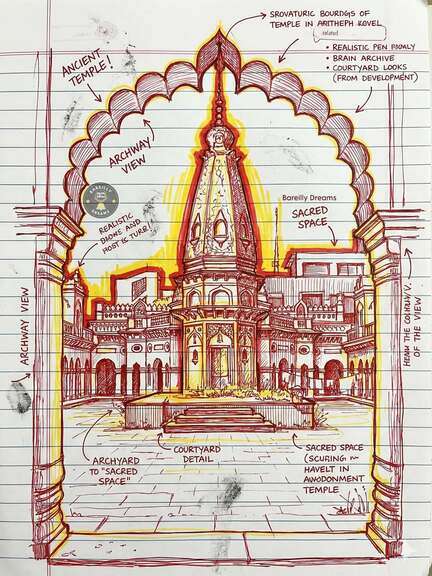 SROVATURIC BOURDGS OF
TEMPLE IN ARITHEPH KOVEL
related
• REALISTIC PEN FIOMLY
• BRAIN ARCHIVE
• COURTYARD LOOKS
(FROM DEVELOPMENT)
ANCIENT
TEMPLE!
ARCHWAY
VIEW
BAREILLY
DREAMS
Bareilly Dreams
SACRED
SPACE
REALISTIC
DIONS AND
HOST & TURB!
ARCHWAY VIEW
OF THE VIEW
ARCHYARD
TO "SACRED
SPACE"
COURTYARD
DETAIL
SACRED SPACE
(SCURING
HAVELT IN
AWODONMENT
TEMPLE